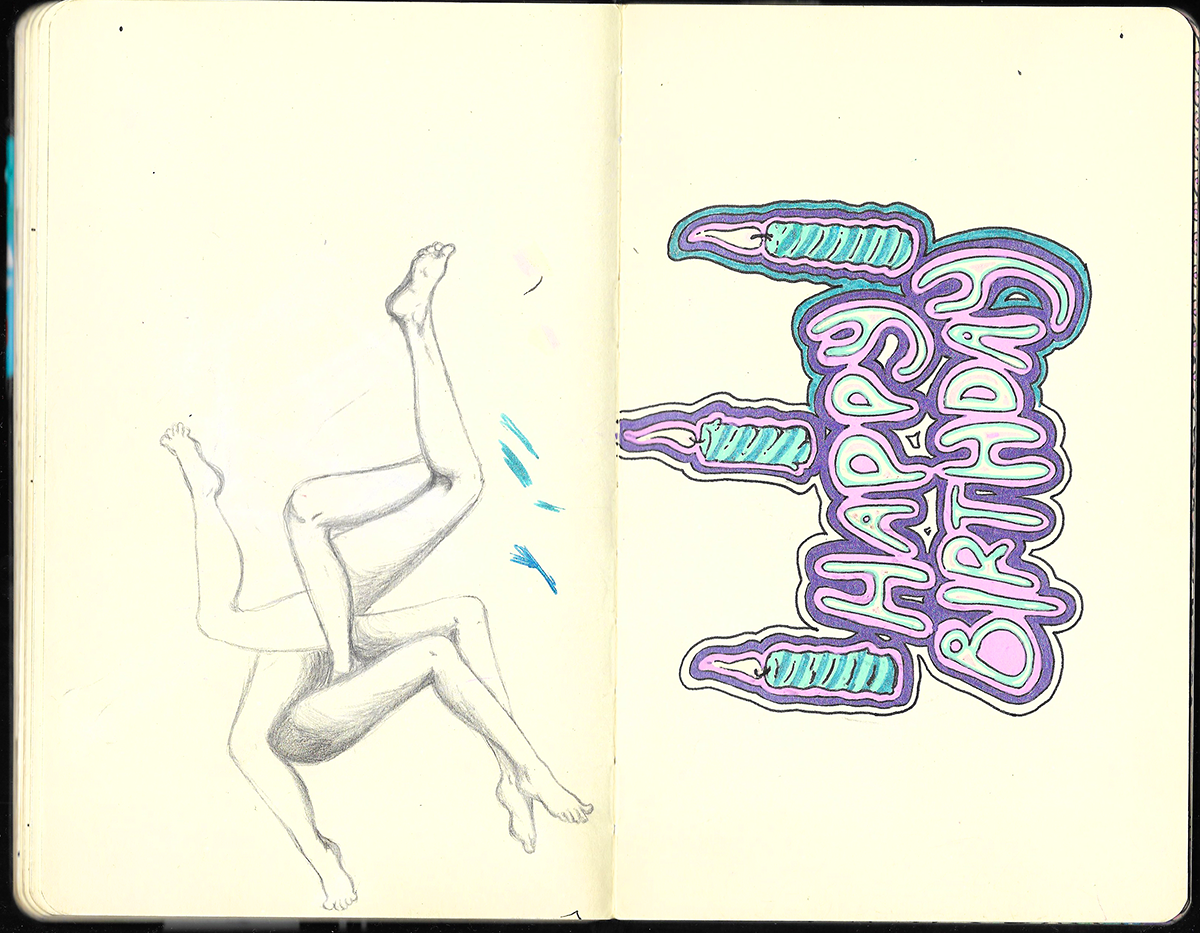 HAPPY
BIRTHDAY